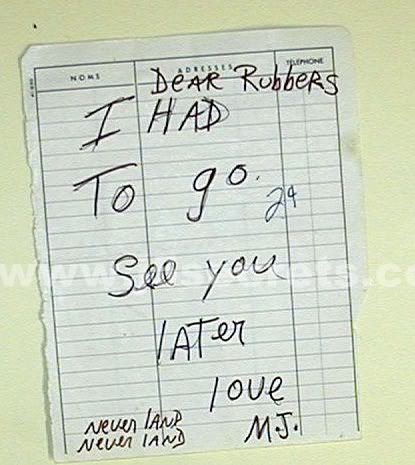 NOMS ADRESSES TÉLÉPHONE
DEAR Rubbers
I HAD
To go.
24
See you
lATer
love
never lAND M.J.
never lAND